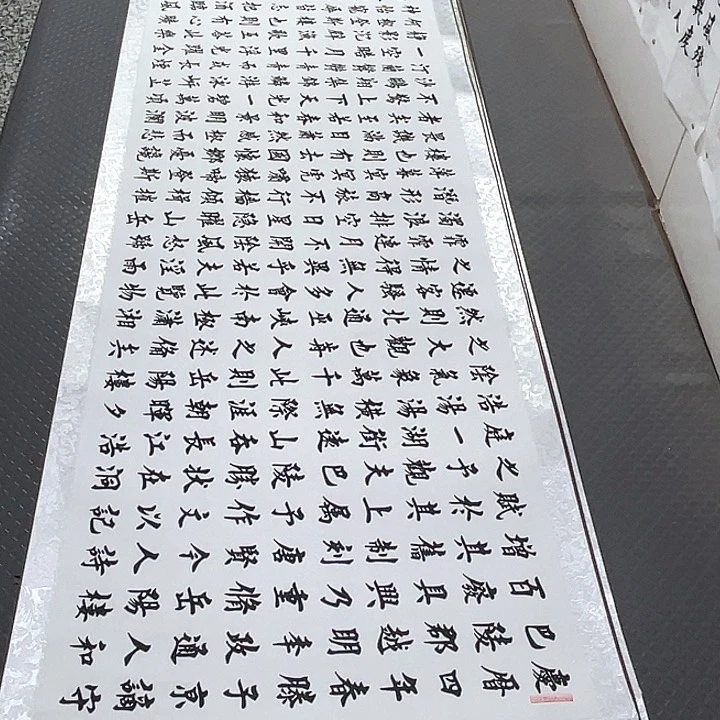 慶曆四年春滕子京謫守
巴陵郡越明年政通人和
百廢具興乃重脩岳陽樓
增其舊制刻唐賢今人詩
賦於其上属予作文以記
之予觀夫巴陵勝狀在洞
庭一湖銜遠山吞長江浩
浩湯湯橫無際涯朝暉夕
陰氣象萬千此則岳陽樓
之大觀也前人之述備矣
然則北通巫峽南極瀟湘
遷客騷人多會於此覽物
之情得無異乎若夫淫雨
霏霏連月不開陰風怒號
濁浪排空日星隱曜山岳
潛形商旅不行檣傾楫摧
薄暮冥冥虎嘯猿啼登斯
樓也則有去國懷鄉憂讒
畏譏滿目蕭然感極而悲
者矣至若春和景明波瀾
不驚上下天光一碧萬頃
沙鷗翔集錦鱗游泳岸芷
汀蘭郁郁青青而或長煙
一空皓月千里浮光躍金